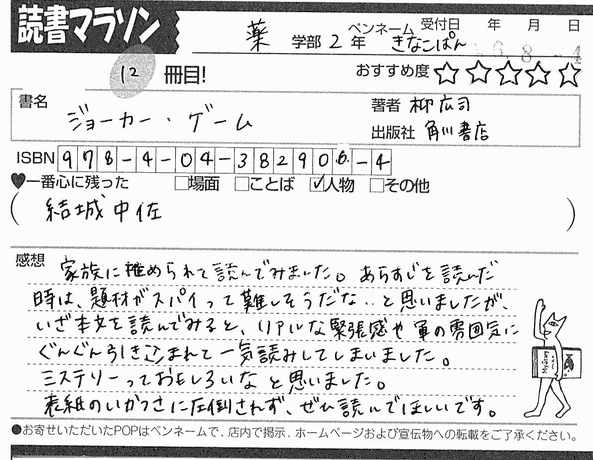 読書マラソン
薬 学部 2 年 ペンネーム きなこぱん 受付日 年 月 日
8. - 4
12 冊目! おすすめ度 ☆☆☆☆☆
書名 ジョーカー・ゲーム
著者 柳広司
出版社 角川書店
ISBN 978-4-04-382906-4
♥一番心に残った □場面 □ことば ☑人物 □その他
( 結城中佐 )
感想 家族に薦められて読んでみました。あらすじを読んだ
時は、題材がスパイって難しそうだな..と思いましたが、
いざ本文を読んでみると、リアルな緊張感や軍の雰囲気に
ぐんぐん引き込まれて一気読みしてしまいました。
ミステリーっておもしろいなと思いました。
表紙のいかつさに圧倒されず、ぜひ読んでほしいです。
●お寄せいただいたPOPはペンネームで、店内で掲示、ホームページおよび宣伝物への転載をご了承ください。